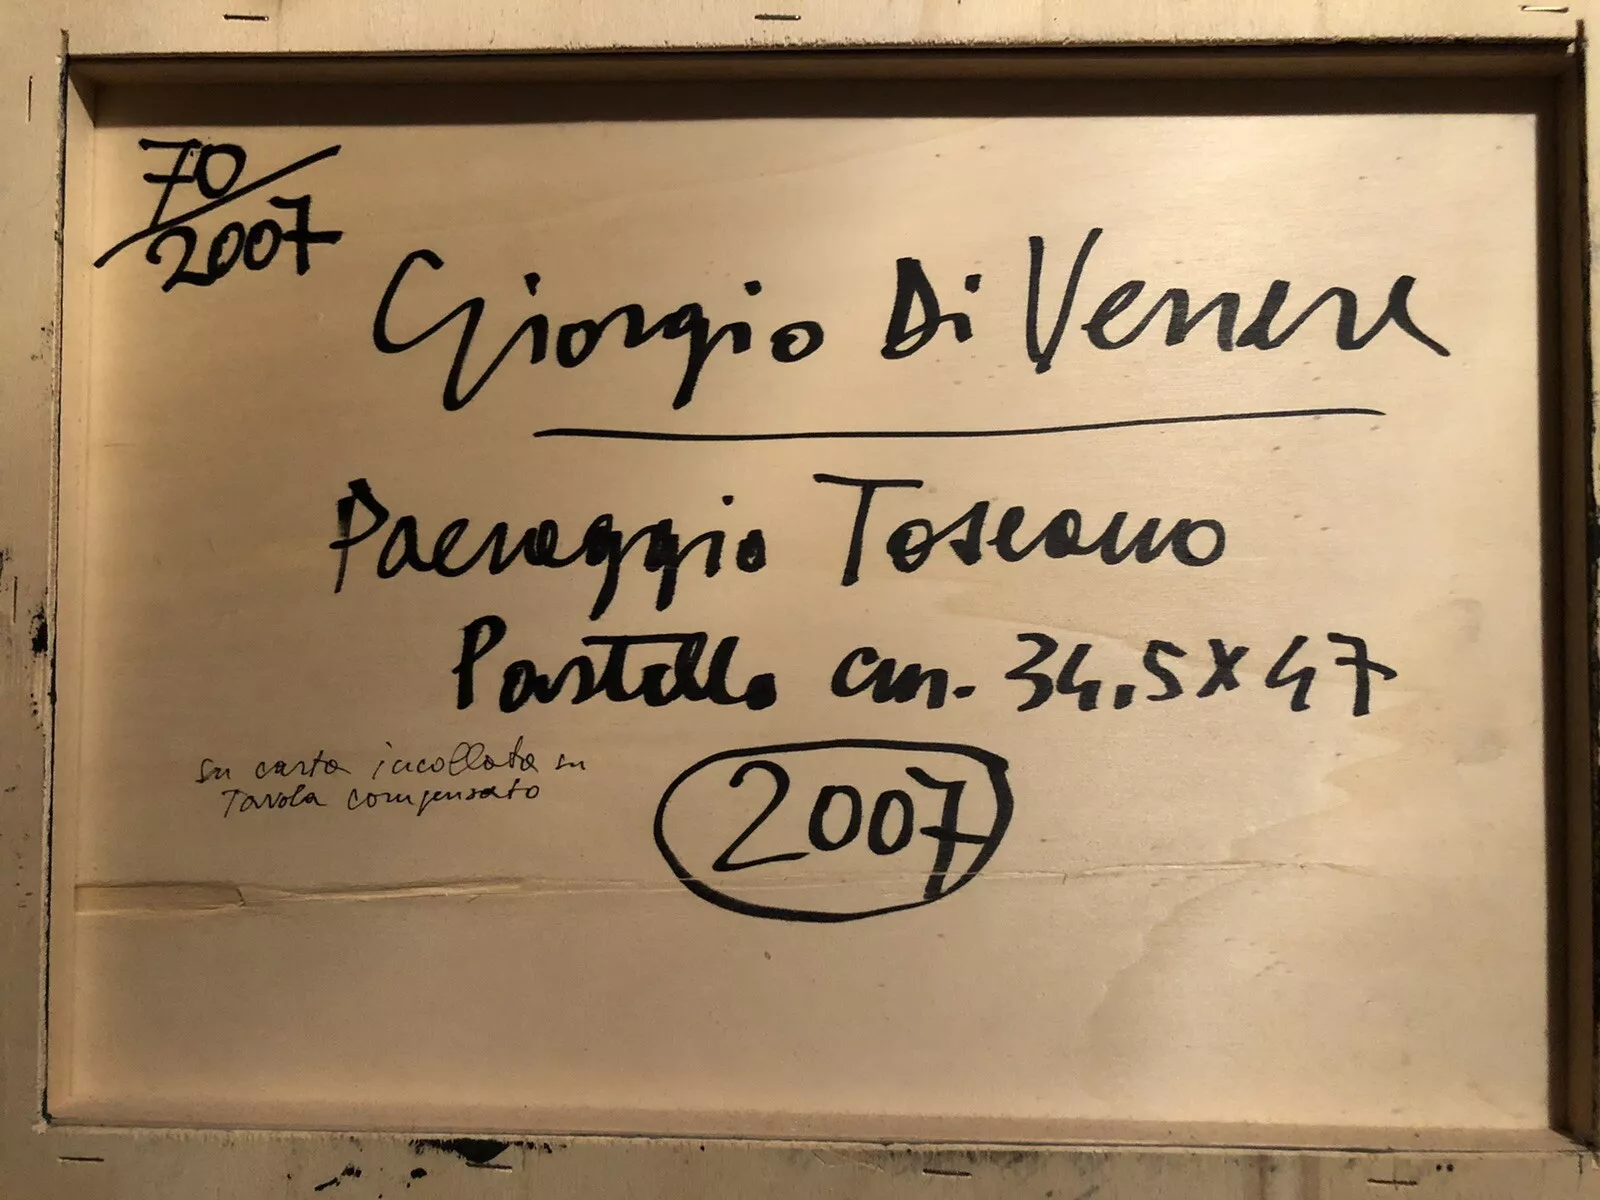 70/2007
Giorgio Di Venere
Paesaggio Toscano
Pastello cm. 34,5 x 47
su carta incollata su
Tavola compensato
2007